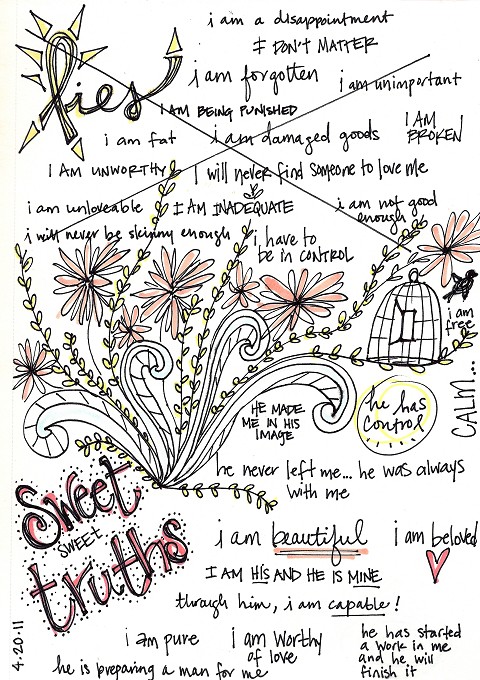 lies
i am a disappointment
I DON'T MATTER
i am forgotten
i am unimportant
I AM BEING PUNISHED
i am fat
i am damaged goods
I AM
BROKEN
I AM UNWORTHY
I will never find someone to love me
i am unloveable
I AM INADEQUATE
i am not good
enough
i will never be skinny enough
i have to
be in CONTROL
i am
free
HE MADE
ME IN HIS
IMAGE
he has
control
CALM...
he never left me... he was always
with me
Sweet
SWEET
truths
i am beautiful
i am beloved
I AM HIS AND HE IS MINE
through him, i am capable!
i am pure
i am worthy
of love
he has started
a work in me
and he will
finish it
he is preparing a man for me
4.20.11